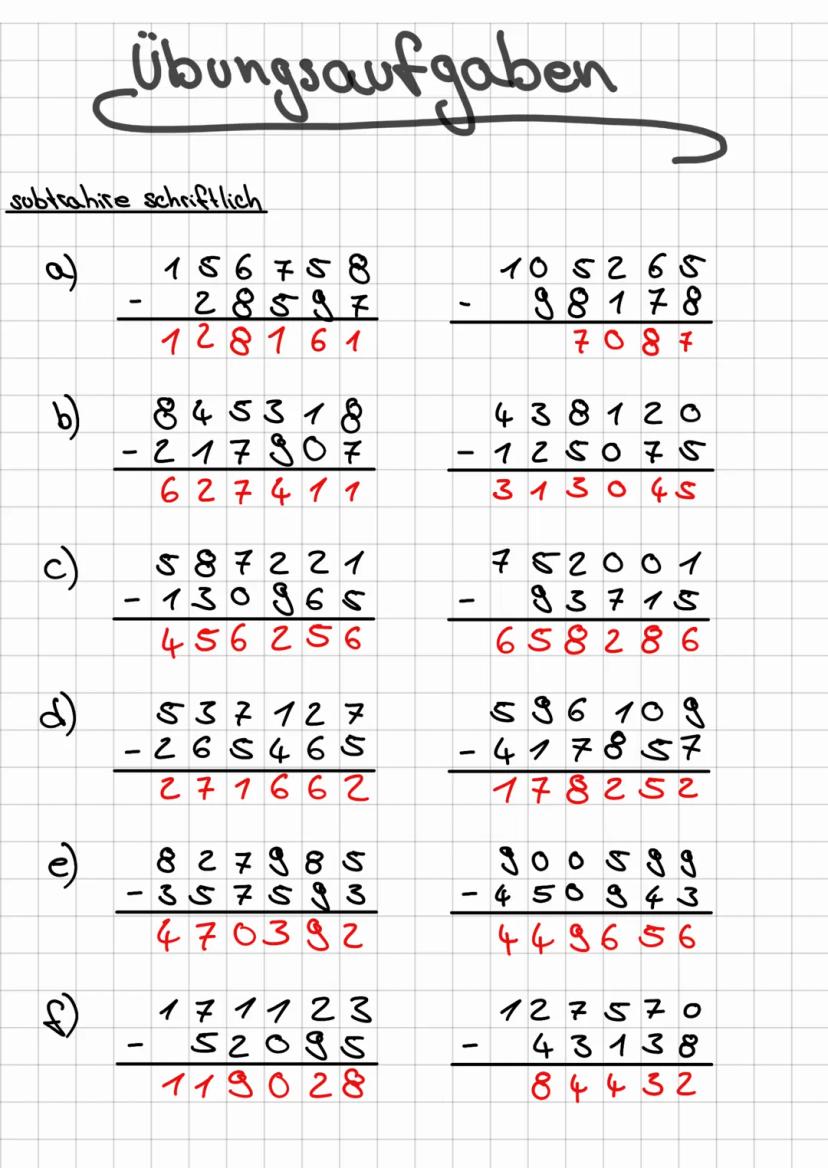 Übungsaufgaben
subtrahire schriftlich
a) 156758 105265
- 28597 - 98178
128161 7087
b) 845318 438120
- 217907 - 125075
627411 313045
c) 587221 752001
- 130965 - 93715
456256 658286
d) 537127 596109
- 265465 - 417857
271662 178252
e) 827985 900599
- 357593 - 450943
470392 449656
f) 171123 127570
- 52095 - 43138
119028 84432